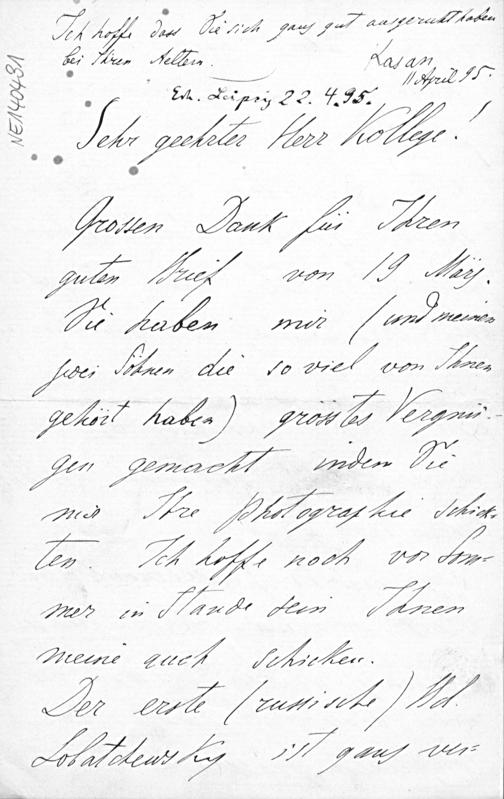 Ich hoffe dass Sie sich ganz gut ausgeruht haben
bei Ihren Aeltern.
Kasan
11 April 95.
NE140481
Erh. Leipzig 22.4.95.
Sehr geehrter Herr Kollege!
Grossen Dank für Ihren
guten Brief von 19 März.
Sie haben mir (und meinen
zwei Söhnen die so viel von Ihnen
gehört haben) grösstes Vergnü-
gen gemacht indem Sie
mir Ihre Photographie schick-
ten. Ich hoffe noch vor Som-
mer in Stande sein Ihnen
meine auch schicken.
Der erste (russische) Bd.
Lobatchewsky ist ganz ver-